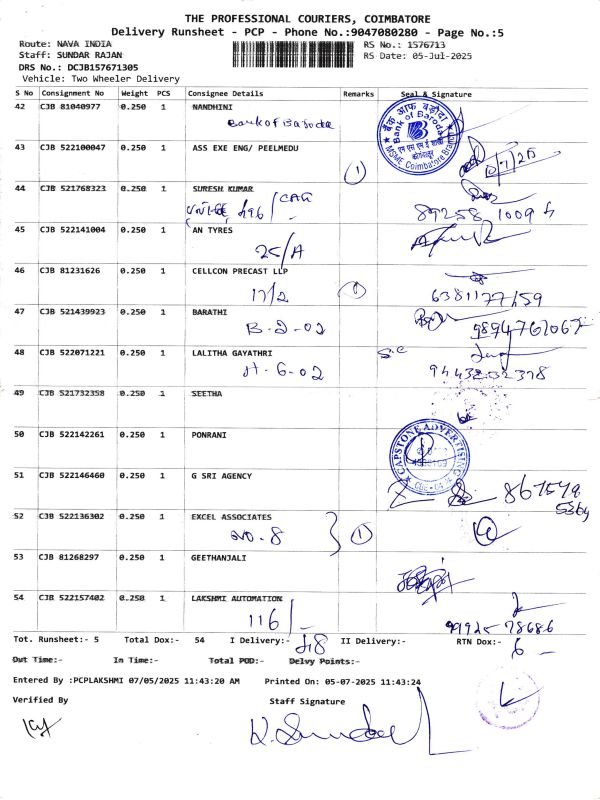 THE PROFESSIONAL COURIERS, COIMBATORE
Delivery Runsheet - PCP - Phone No.:9047080280 - Page No.:5
Route: NAVA INDIA RS No.: 1576713
Staff: SUNDAR RAJAN RS Date: 05-Jul-2025
DRS No.: DCJB157671305
Vehicle: Two Wheeler Delivery
S No Consignment No Weight PCS Consignee Details Remarks Seal & Signature
42 CJB 81040977 0.250 1 NANDHINI
Bank of Baroda
बैंक ऑफ़ बड़ौदा
Bank of Baroda
MSME Coimbatore Branch
43 CJB 522100047 0.250 1 ASS EXE ENG/ PEELMEDU
1
44 CJB 521768323 0.250 1 SURESH KUMAR
496
89258 1009
45 CJB 522141004 0.250 1 AN TYRES
25/A
46 CJB 81231626 0.250 1 CELLCON PRECAST LLP
17/2
6381177159
47 CJB 521439923 0.250 1 BARATHI
B-2-02
48 CJB 522071221 0.250 1 LALITHA GAYATHRI
H-6-02
S.C
49 CJB 521732358 0.250 1 SEETHA
50 CJB 522142261 0.250 1 PONRANI
CAPSTONE ADVERTISING
51 CJB 522146460 0.250 1 G SRI AGENCY
52 CJB 522136302 0.250 1 EXCEL ASSOCIATES
No. 8
1
53 CJB 81268297 0.250 1 GEETHANJALI
54 CJB 522157402 0.250 1 LAKSHMI AUTOMATION
116/
99925 78686
Tot. Runsheet:- 5 Total Dox:- 54 I Delivery:- 48 II Delivery:- RTN Dox:- 6
Out Time:- In Time:- Total POD:- Delvy Points:-
Entered By :PCPLAKSHMI 07/05/2025 11:43:20 AM Printed On: 05-07-2025 11:43:24
Verified By Staff Signature